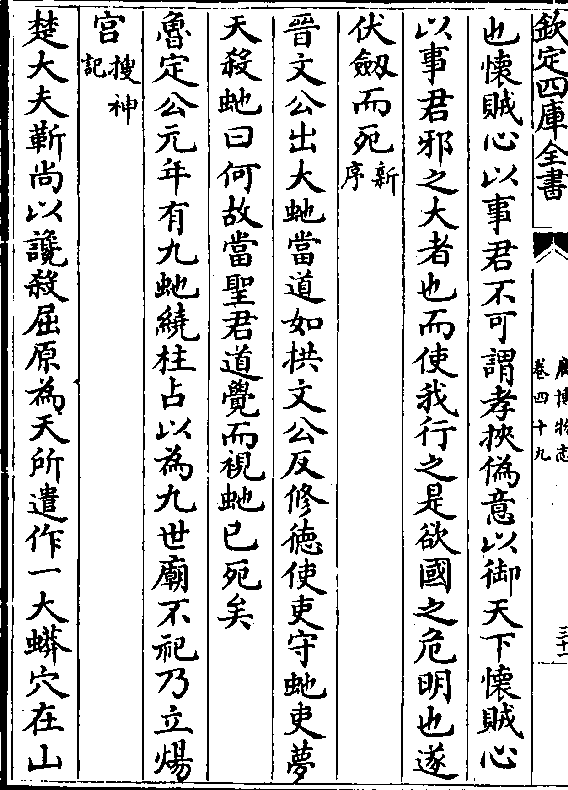 欽定四庫全書
廣博物志
卷四十九
三十一
也懷賊心以事君不可謂孝挾偽意以御天下懷賊心
以事君邪之大者也而使我行之是欲國之危明也遂
伏劔而死新序
晉文公出大虵當道如拱文公反修徳使吏守虵吏夢
天殺虵曰何故當聖君道覺而視虵已死矣
魯定公元年有九虵繞柱占以為九世廟不祀乃立煬
宫搜神記
楚大夫靳尚以讒殺屈原為天所遣作一大蟒穴在山